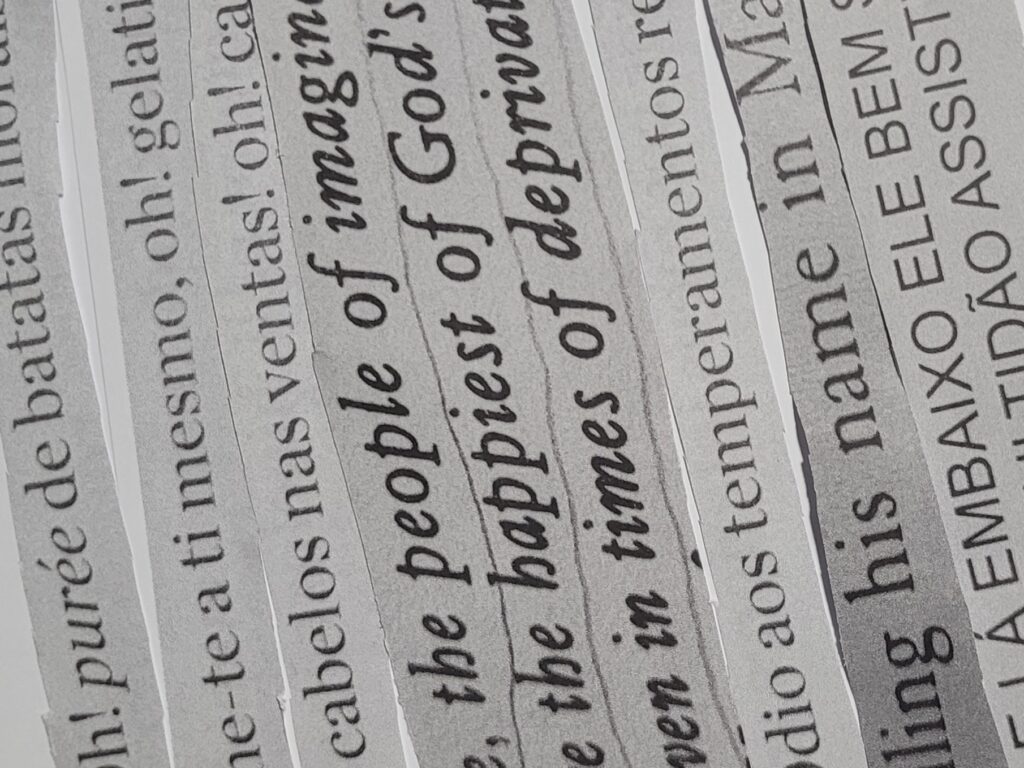 Oh! purée de batatas
ne-te a ti mesmo, oh! gelati
cabelos nas ventas! oh! ca
e, the people of imagin
e the happiest of God's
ven in times of deprivat
dio aos temperamentos re
lling his name in Ma
E LÁ EMBAIXO ELE BEM S
LTIDÃO ASSIST